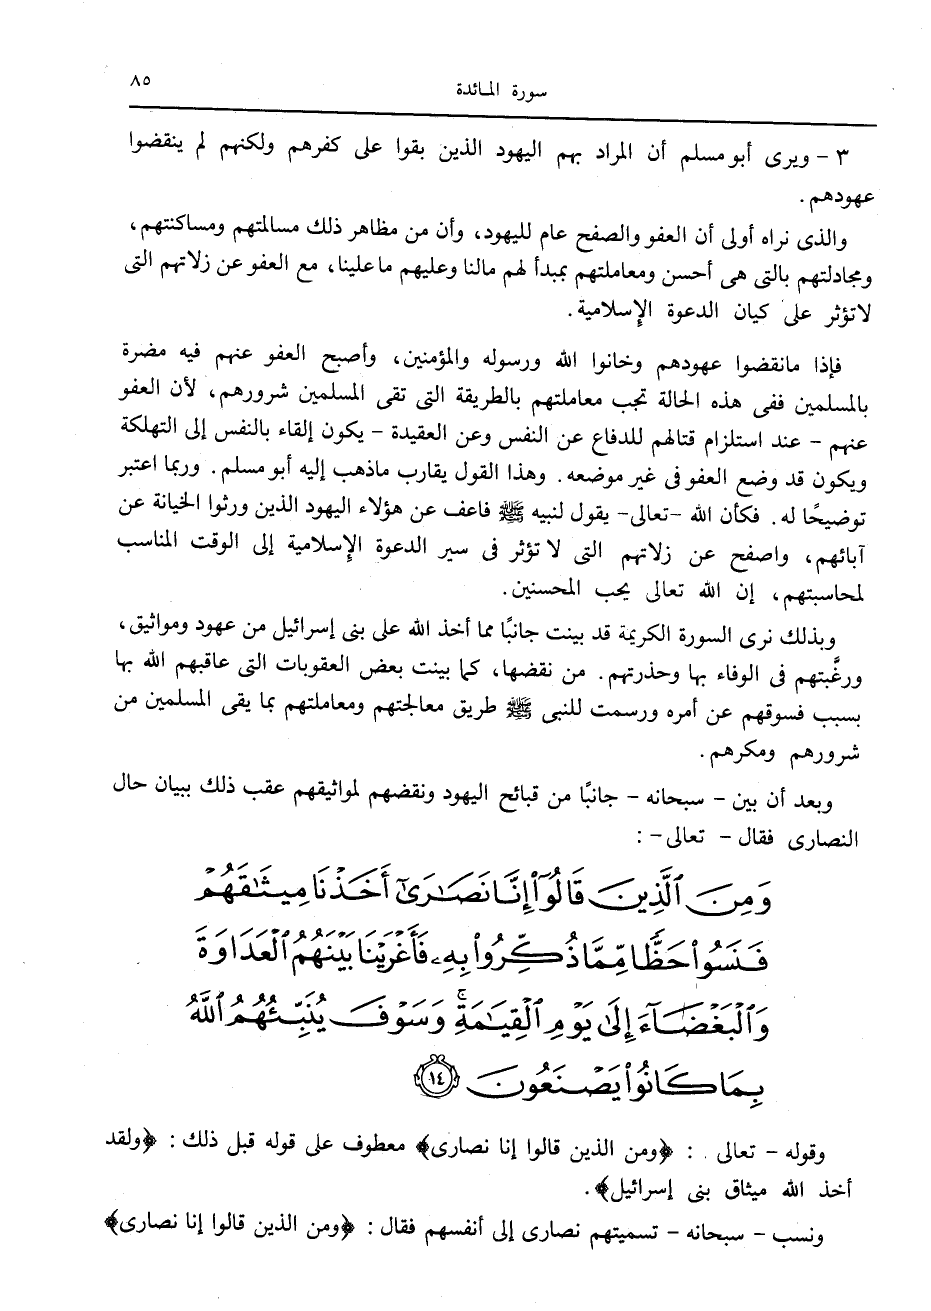 سورة المائدة
٨٥
٣ - ويرى أبو مسلم أن المراد بهم اليهود الذين بقوا على كفرهم ولكنهم لم ينقضوا
عهودهم.
والذى نراه أولى أن العفو والصفح عام لليهود، وأن من مظاهر ذلك مسالمتهم ومساكنتهم،
ومجادلتهم بالتى هى أحسن ومعاملتهم بمبدأ لهم مالنا وعليهم ماعلينا، مع العفو عن زلاتهم التى
لاتؤثر على كيان الدعوة الإسلامية.
فإذا مانقضوا عهودهم وخانوا الله ورسوله والمؤمنين، وأصبح العفو عنهم فيه مضرة
بالمسلمين ففى هذه الحالة تجب معاملتهم بالطريقة التى تقى المسلمين شرورهم، لأن العفو
عنهم - عند استلزام قتالهم للدفاع عن النفس وعن العقيدة - يكون إلقاء بالنفس إلى التهلكة
ويكون قد وضع العفو فى غير موضعه. وهذا القول يقارب ماذهب إليه أبو مسلم. وربما اعتبر
توضيحًا له. فكأن الله -تعالى- يقول لنبيه ﷺ فاعف عن هؤلاء اليهود الذين ورثوا الخيانة عن
آبائهم، واصفح عن زلاتهم التى لا تؤثر فى سير الدعوة الإسلامية إلى الوقت المناسب
لمحاسبتهم، إن الله تعالى يحب المحسنين.
وبذلك نرى السورة الكريمة قد بينت جانبًا مما أخذ الله على بنى إسرائيل من عهود ومواثيق،
ورغَّبتهم فى الوفاء بها وحذرتهم. من نقضها، كما بينت بعض العقوبات التى عاقبهم الله بها
بسبب فسوقهم عن أمره ورسمت للنبى ﷺ طريق معالجتهم ومعاملتهم بما يقى المسلمين من
شرورهم ومكرهم.
وبعد أن بين - سبحانه - جانبًا من قبائح اليهود ونقضهم لمواثيقهم عقب ذلك ببيان حال
النصارى فقال - تعالى- :
وَمِنَ ٱلَّذِينَ قَالُوٓا۟ إِنَّا نَصَـٰرَىٰٓ أَخَذْنَا مِيثَـٰقَهُمْ
فَنَسُوا۟ حَظًّا مِّمَّا ذُكِّرُوا۟ بِهِۦ فَأَغْرَيْنَا بَيْنَهُمُ ٱلْعَدَاوَةَ
وَٱلْبَغْضَآءَ إِلَىٰ يَوْمِ ٱلْقِيَـٰمَةِ ۚ وَسَوْفَ يُنَبِّئُهُمُ ٱللَّهُ
بِمَا كَانُوا۟ يَصْنَعُونَ ١٤
وقوله - تعالى . : ﴿ومن الذين قالوا إنا نصارى﴾ معطوف على قوله قبل ذلك : ﴿ولقد
أخذ الله ميثاق بنى إسرائيل﴾.
ونسب - سبحانه - تسميتهم نصارى إلى أنفسهم فقال : ﴿ومن الذين قالوا إنا نصارى﴾